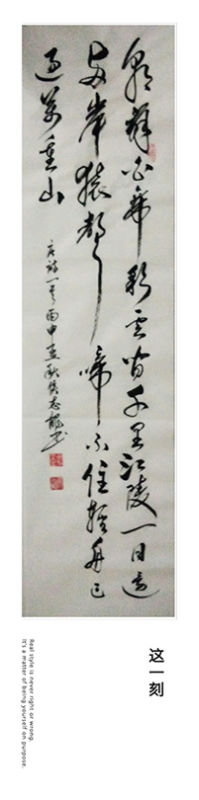 朝辭白帝彩雲間千里江陵一日還
兩岸猿聲啼不住輕舟已
過萬重山
唐詩一首丙申孟秋志龍書
这一刻
Real style is never right or wrong.
It's a matter of being yourself on purpose.